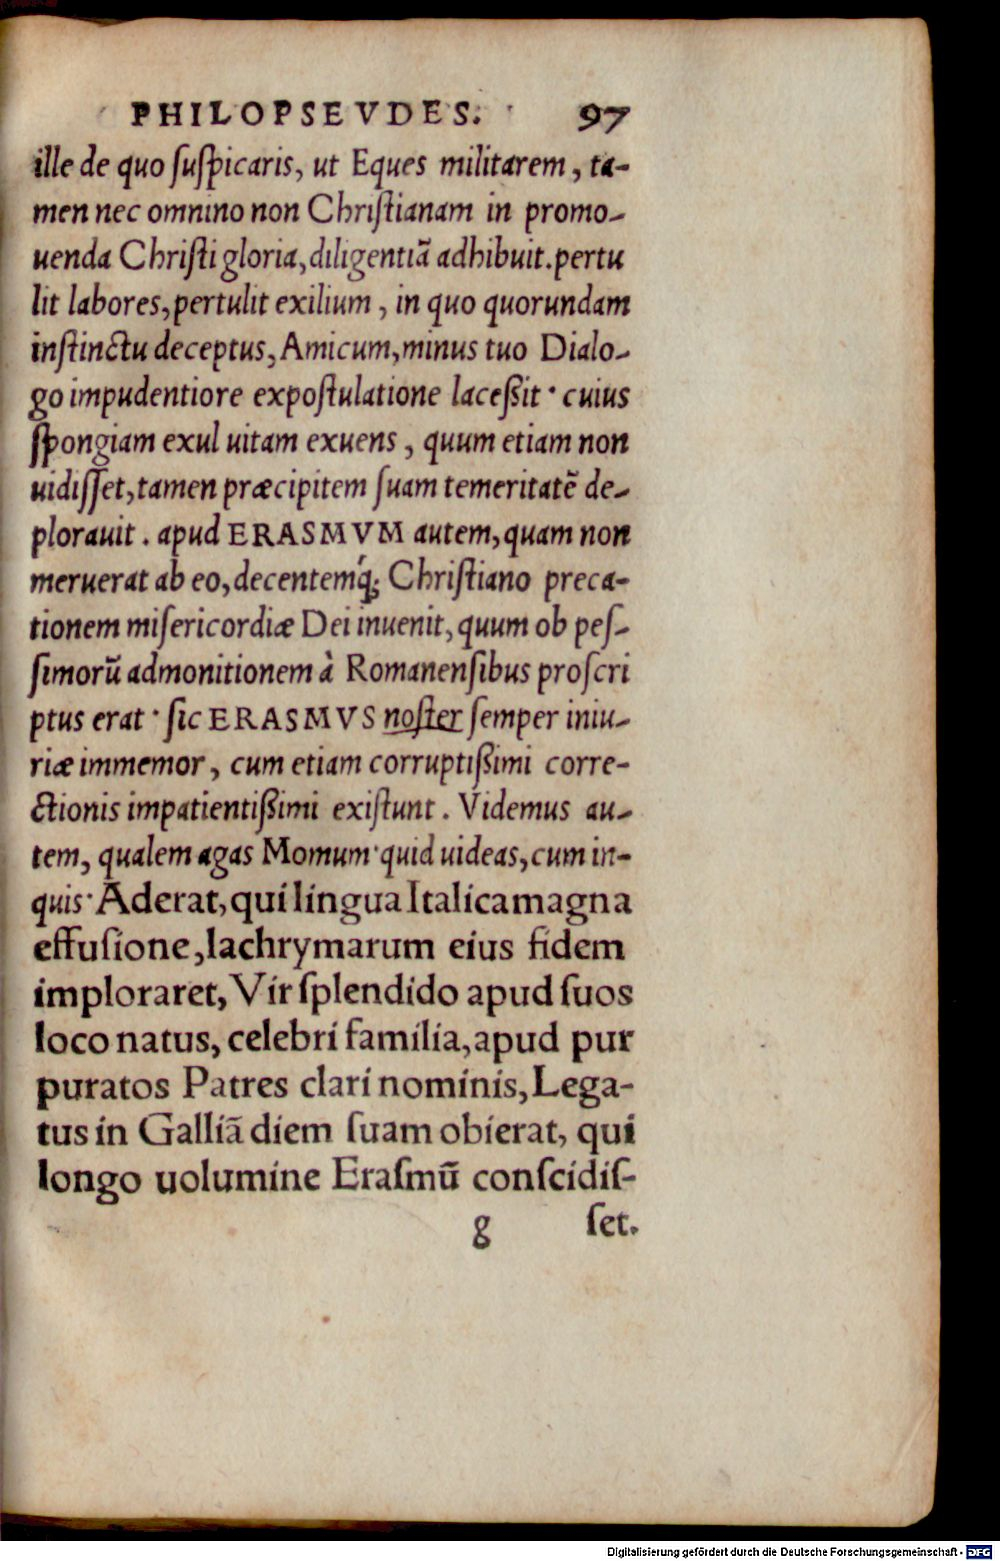 PHILOPSEVDES. 97
ille de quo ſuſpicaris, ut Eques militarem, ta-
men nec omnino non Chriſtianam in promo-
uenda Chriſti gloria, diligentiã adhibuit. pertu
lit labores, pertulit exilium, in quo quorundam
inſtinctu deceptus, Amicum, minus tuo Dialo-
go impudentiore expoſtulatione laceßit· cuius
ſpongiam exul uitam exuens, quum etiam non
uidiſſet, tamen præcipitem ſuam temeritatẽ de-
plorauit. apud ERASMVM autem, quam non
meruerat ab eo, decentemq́; Chriſtiano preca-
tionem miſericordiæ Dei inuenit, quum ob peſ-
ſimorũ admonitionem à Romanenſibus proſcri
ptus erat· ſic ERASMVS noſter ſemper iniu-
riæ immemor, cum etiam corruptißimi corre-
ctionis impatientißimi exiſtunt. Videmus au-
tem, qualem agas Momum· quid uideas, cum in-
quis· Aderat, qui lingua Italica magna
effuſione, lachrymarum eius fidem
imploraret, Vir ſplendido apud ſuos
loco natus, celebri familia, apud pur
puratos Patres clari nominis, Lega-
tus in Galliã diem ſuam obierat, qui
longo uolumine Eraſmũ conſcidiſ-
g ſet.
Digitalisierung gefördert durch die Deutsche Forschungsgemeinschaft - DFG